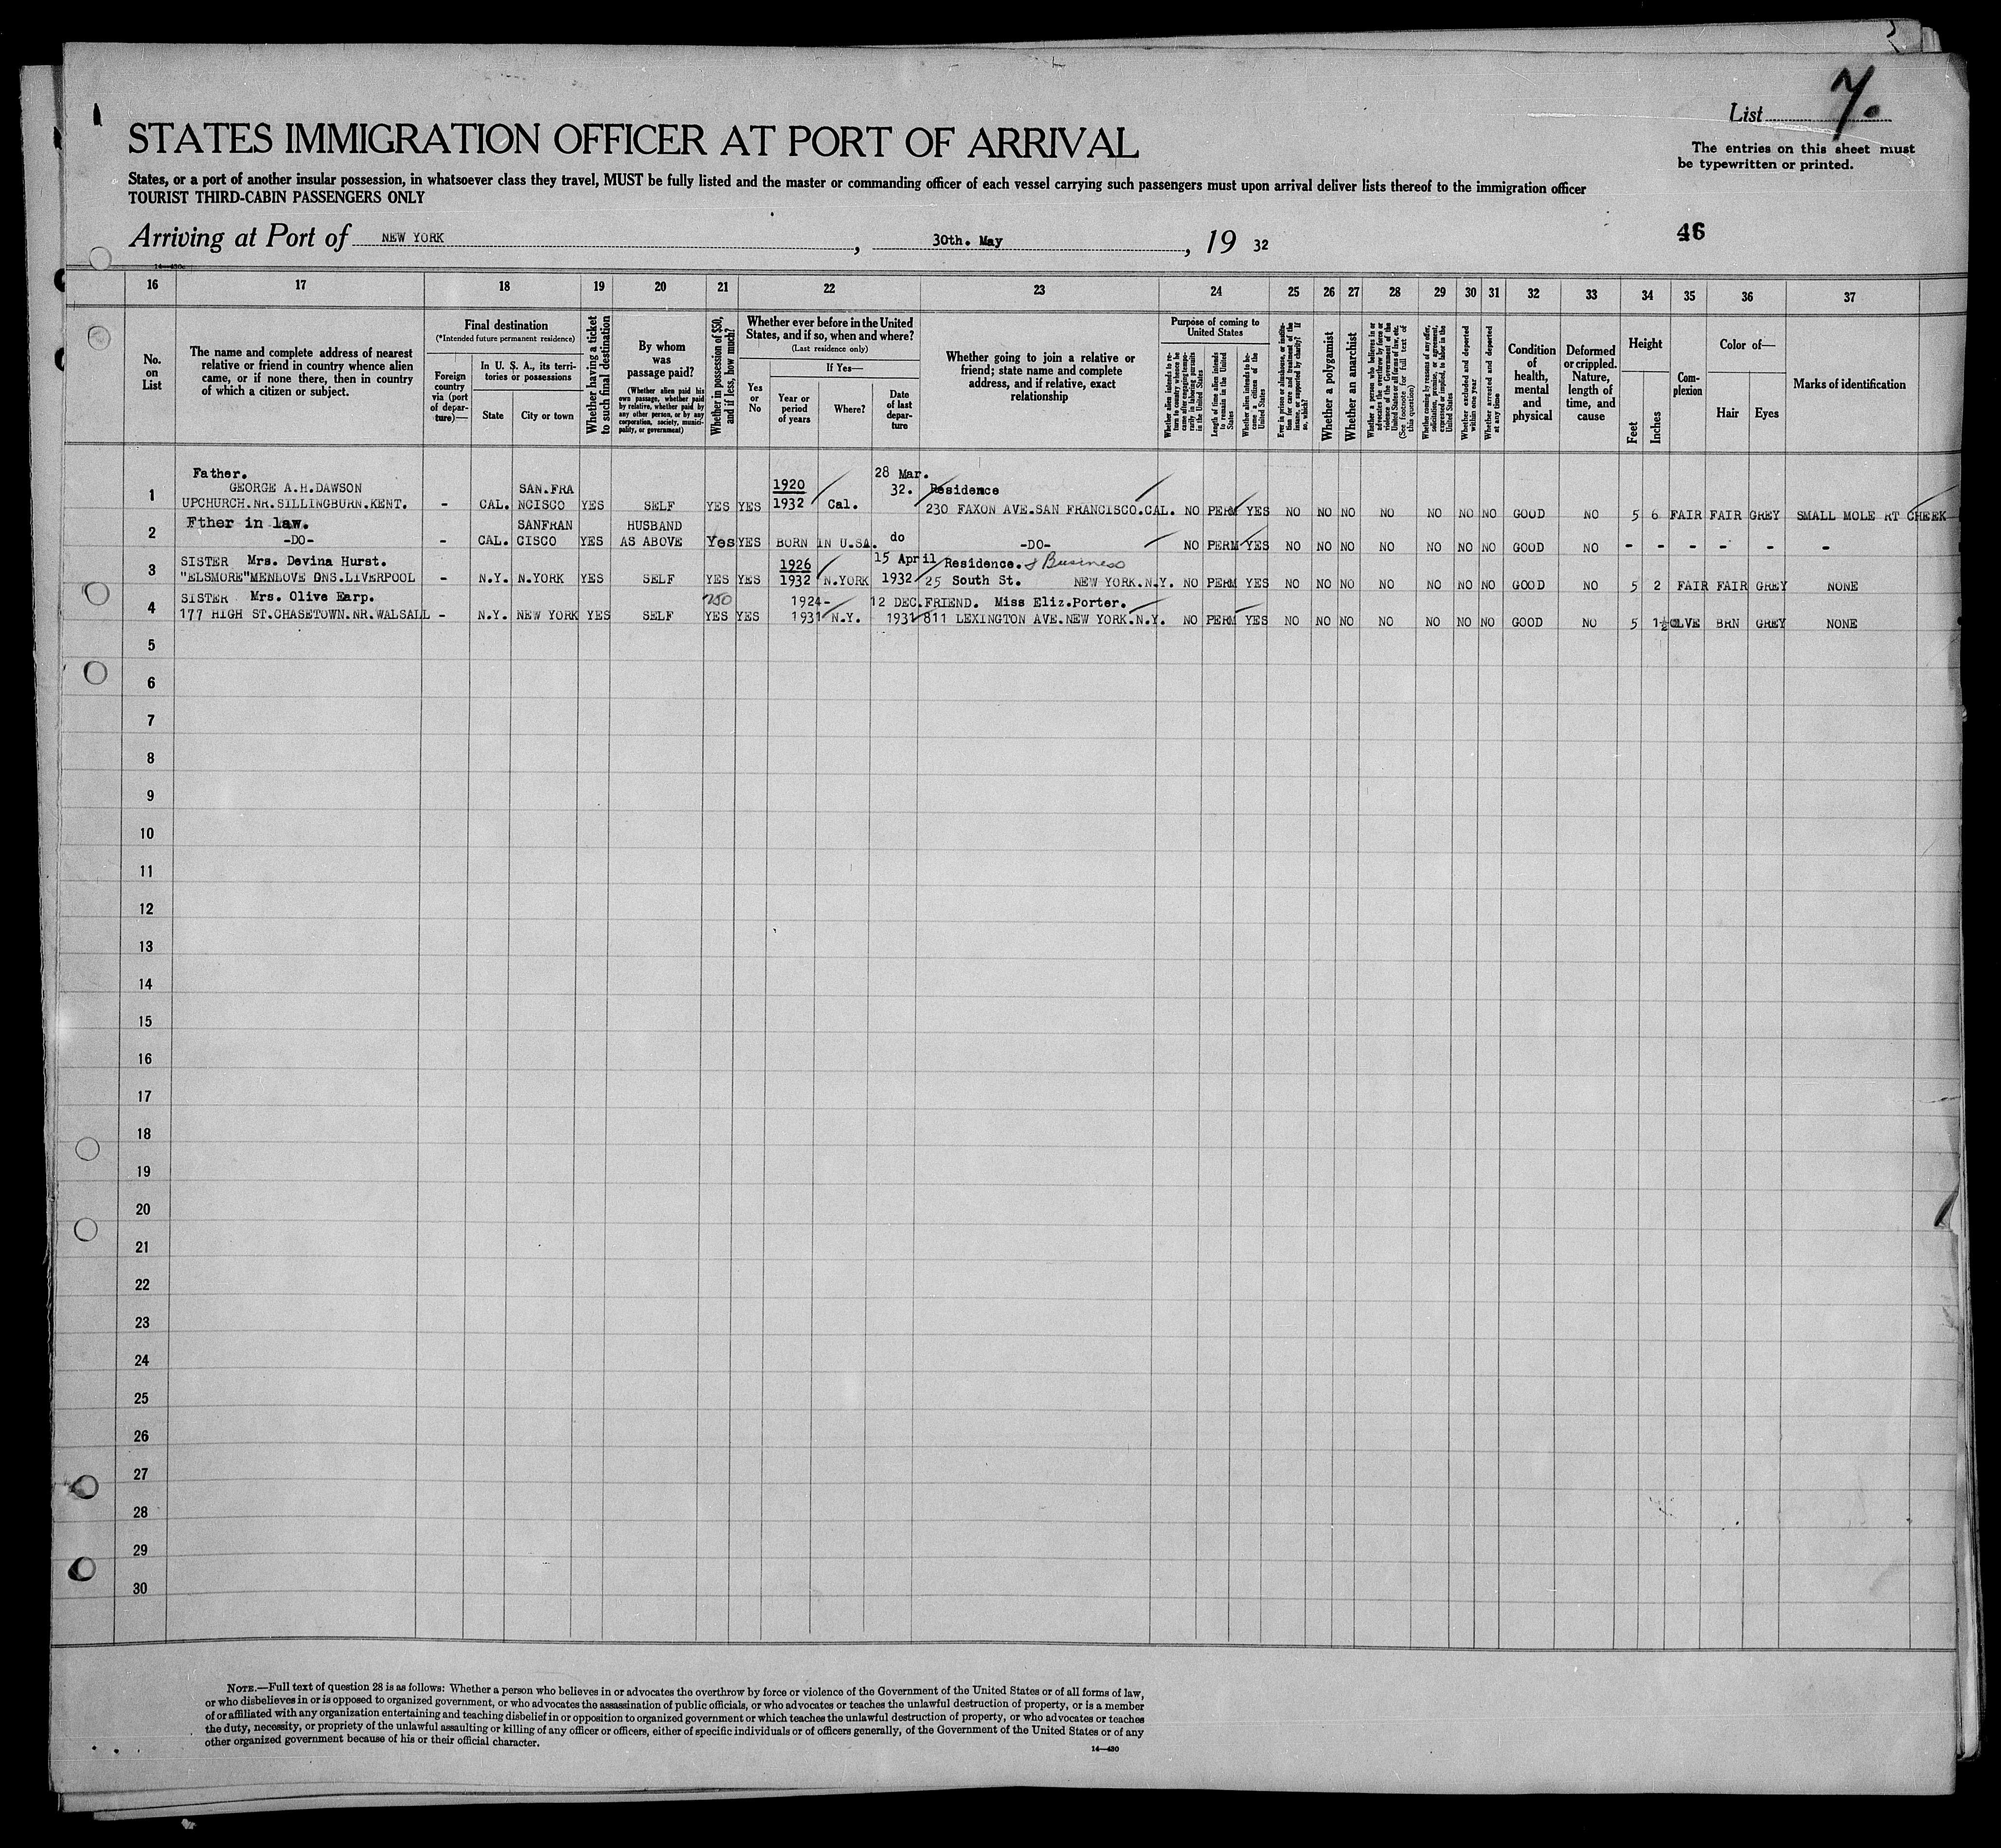 List 7.
STATES IMMIGRATION OFFICER AT PORT OF ARRIVAL
The entries on this sheet must
be typewritten or printed.
States, or a port of another insular possession, in whatsoever class they travel, MUST be fully listed and the master or commanding officer of each vessel carrying such passengers must upon arrival deliver lists thereof to the immigration officer
TOURIST THIRD-CABIN PASSENGERS ONLY
Arriving at Port of NEW YORK, 30th. May, 19 32
46
16 17 18 19 20 21 22 23 24 25 26 27 28 29 30 31 32 33 34 35 36 37
No.
on
List
The name and complete address of nearest
relative or friend in country whence alien
came, or if none there, then in country
of which a citizen or subject.
Final destination
(*Intended future permanent residence)
Foreign
country
via (port
of depar-
ture)—
In U. S. A., its terri-
tories or possessions
State
City or town
Whether having a ticket
to such final destination
By whom
was
passage paid?
(Whether alien paid his
own passage, whether paid
by relative, whether paid by
any other person, or by any
corporation, society, munici-
pality, or government)
Whether in possession of $50,
and if less, how much?
Whether ever before in the United
States, and if so, when and where?
(Last residence only)
Yes
or
No
If Yes—
Year or
period
of years
Where?
Date
of last
depar-
ture
Whether going to join a relative or
friend; state name and complete
address, and if relative, exact
relationship
Purpose of coming to
United States
Whether alien intends to re-
turn to country whence he
came after engaging tempo-
rarily in laboring pursuits
in the United States
Length of time alien intends
to remain in the United
States
Whether alien intends to be-
come a citizen of the
United States
Ever in prison or almshouse, or institu-
tion for care and treatment of the
insane, or supported by charity? If
so, which?
Whether a polygamist
Whether an anarchist
Whether a person who believes in or
advocates the overthrow by force or
violence of the Government of the
United States or all forms of law, etc.
(See footnote for full text of
this question)
Whether coming by reason of any offer,
solicitation, promise, or agreement,
expressed or implied, to labor in the
United States
Whether excluded and deported
within one year
Whether arrested and deported
at any time
Condition
of
health,
mental
and
physical
Deformed
or crippled.
Nature,
length of
time, and
cause
Height
Feet
Inches
Com-
plexion
Color of—
Hair
Eyes
Marks of identification
Father. 28 Mar.
GEORGE A.H.DAWSON SAN.FRA 1920 32. Residence
1 UPCHURCH.NR.SILLINGBURN.KENT. - CAL. NCISCO YES SELF YES YES 1932 Cal. 230 FAXON AVE.SAN FRANCISCO.CAL. NO PERM YES NO NO NO NO NO NO NO GOOD NO 5 6 FAIR FAIR GREY SMALL MOLE RT CHEEK
Fther in law. SANFRAN HUSBAND
2 -DO- - CAL. CISCO YES AS ABOVE Yes YES BORN IN U.SA. do -DO- NO PERM YES NO NO NO NO NO NO NO GOOD NO - - - - - -
SISTER Mrs. Devina Hurst. 1926 15 April Residence. & Business
3 "ELSMORE"MENLOVE GNS.LIVERPOOL - N.Y. N.YORK YES SELF YES YES 1932 N.YORK 1932 25 South St. NEW YORK.N.Y. NO PERM YES NO NO NO NO NO NO NO GOOD NO 5 2 FAIR FAIR GREY NONE
SISTER Mrs. Olive Earp. 1924- 12 DEC. FRIEND. Miss Eliz.Porter.
4 177 HIGH ST.CHASETOWN.NR.WALSALL - N.Y. NEW YORK YES SELF YES YES 1931 N.Y. 1931 811 LEXINGTON AVE.NEW YORK.N.Y. NO PERM YES NO NO NO NO NO NO NO GOOD NO 5 1½ OLVE BRN GREY NONE
5
6
7
8
9
10
11
12
13
14
15
16
17
18
19
20
21
22
23
24
25
26
27
28
29
30
NOTE.—Full text of question 28 is as follows: Whether a person who believes in or advocates the overthrow by force or violence of the Government of the United States or of all forms of law,
or who disbelieves in or is opposed to organized government, or who advocates the assassination of public officials, or who advocates or teaches the unlawful destruction of property, or is a member
of or affiliated with any organization entertaining and teaching disbelief in or opposition to organized government or which teaches the unlawful destruction of property, or who advocates or teaches
the duty, necessity, or propriety of the unlawful assaulting or killing of any officer or officers, either of specific individuals or of officers generally, of the Government of the United States or of any
other organized government because of his or their official character.
14—430